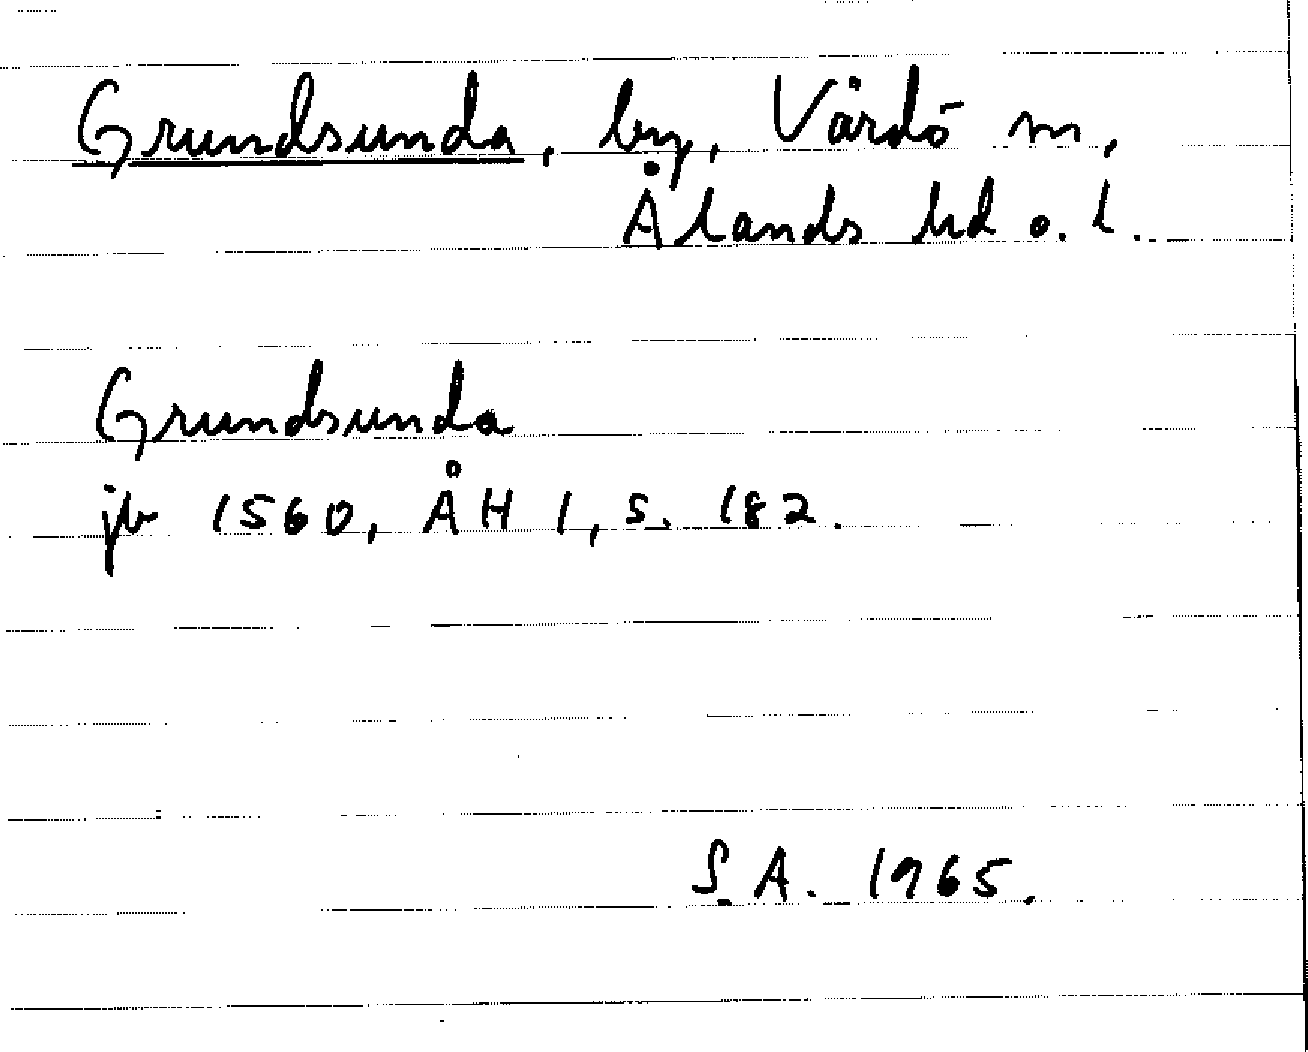 Grundsunda, by, Vårdö m,
Ålands hd o. l.
Grundsunda
jb 1560, ÅH 1, s. 182.
S.A. 1965.